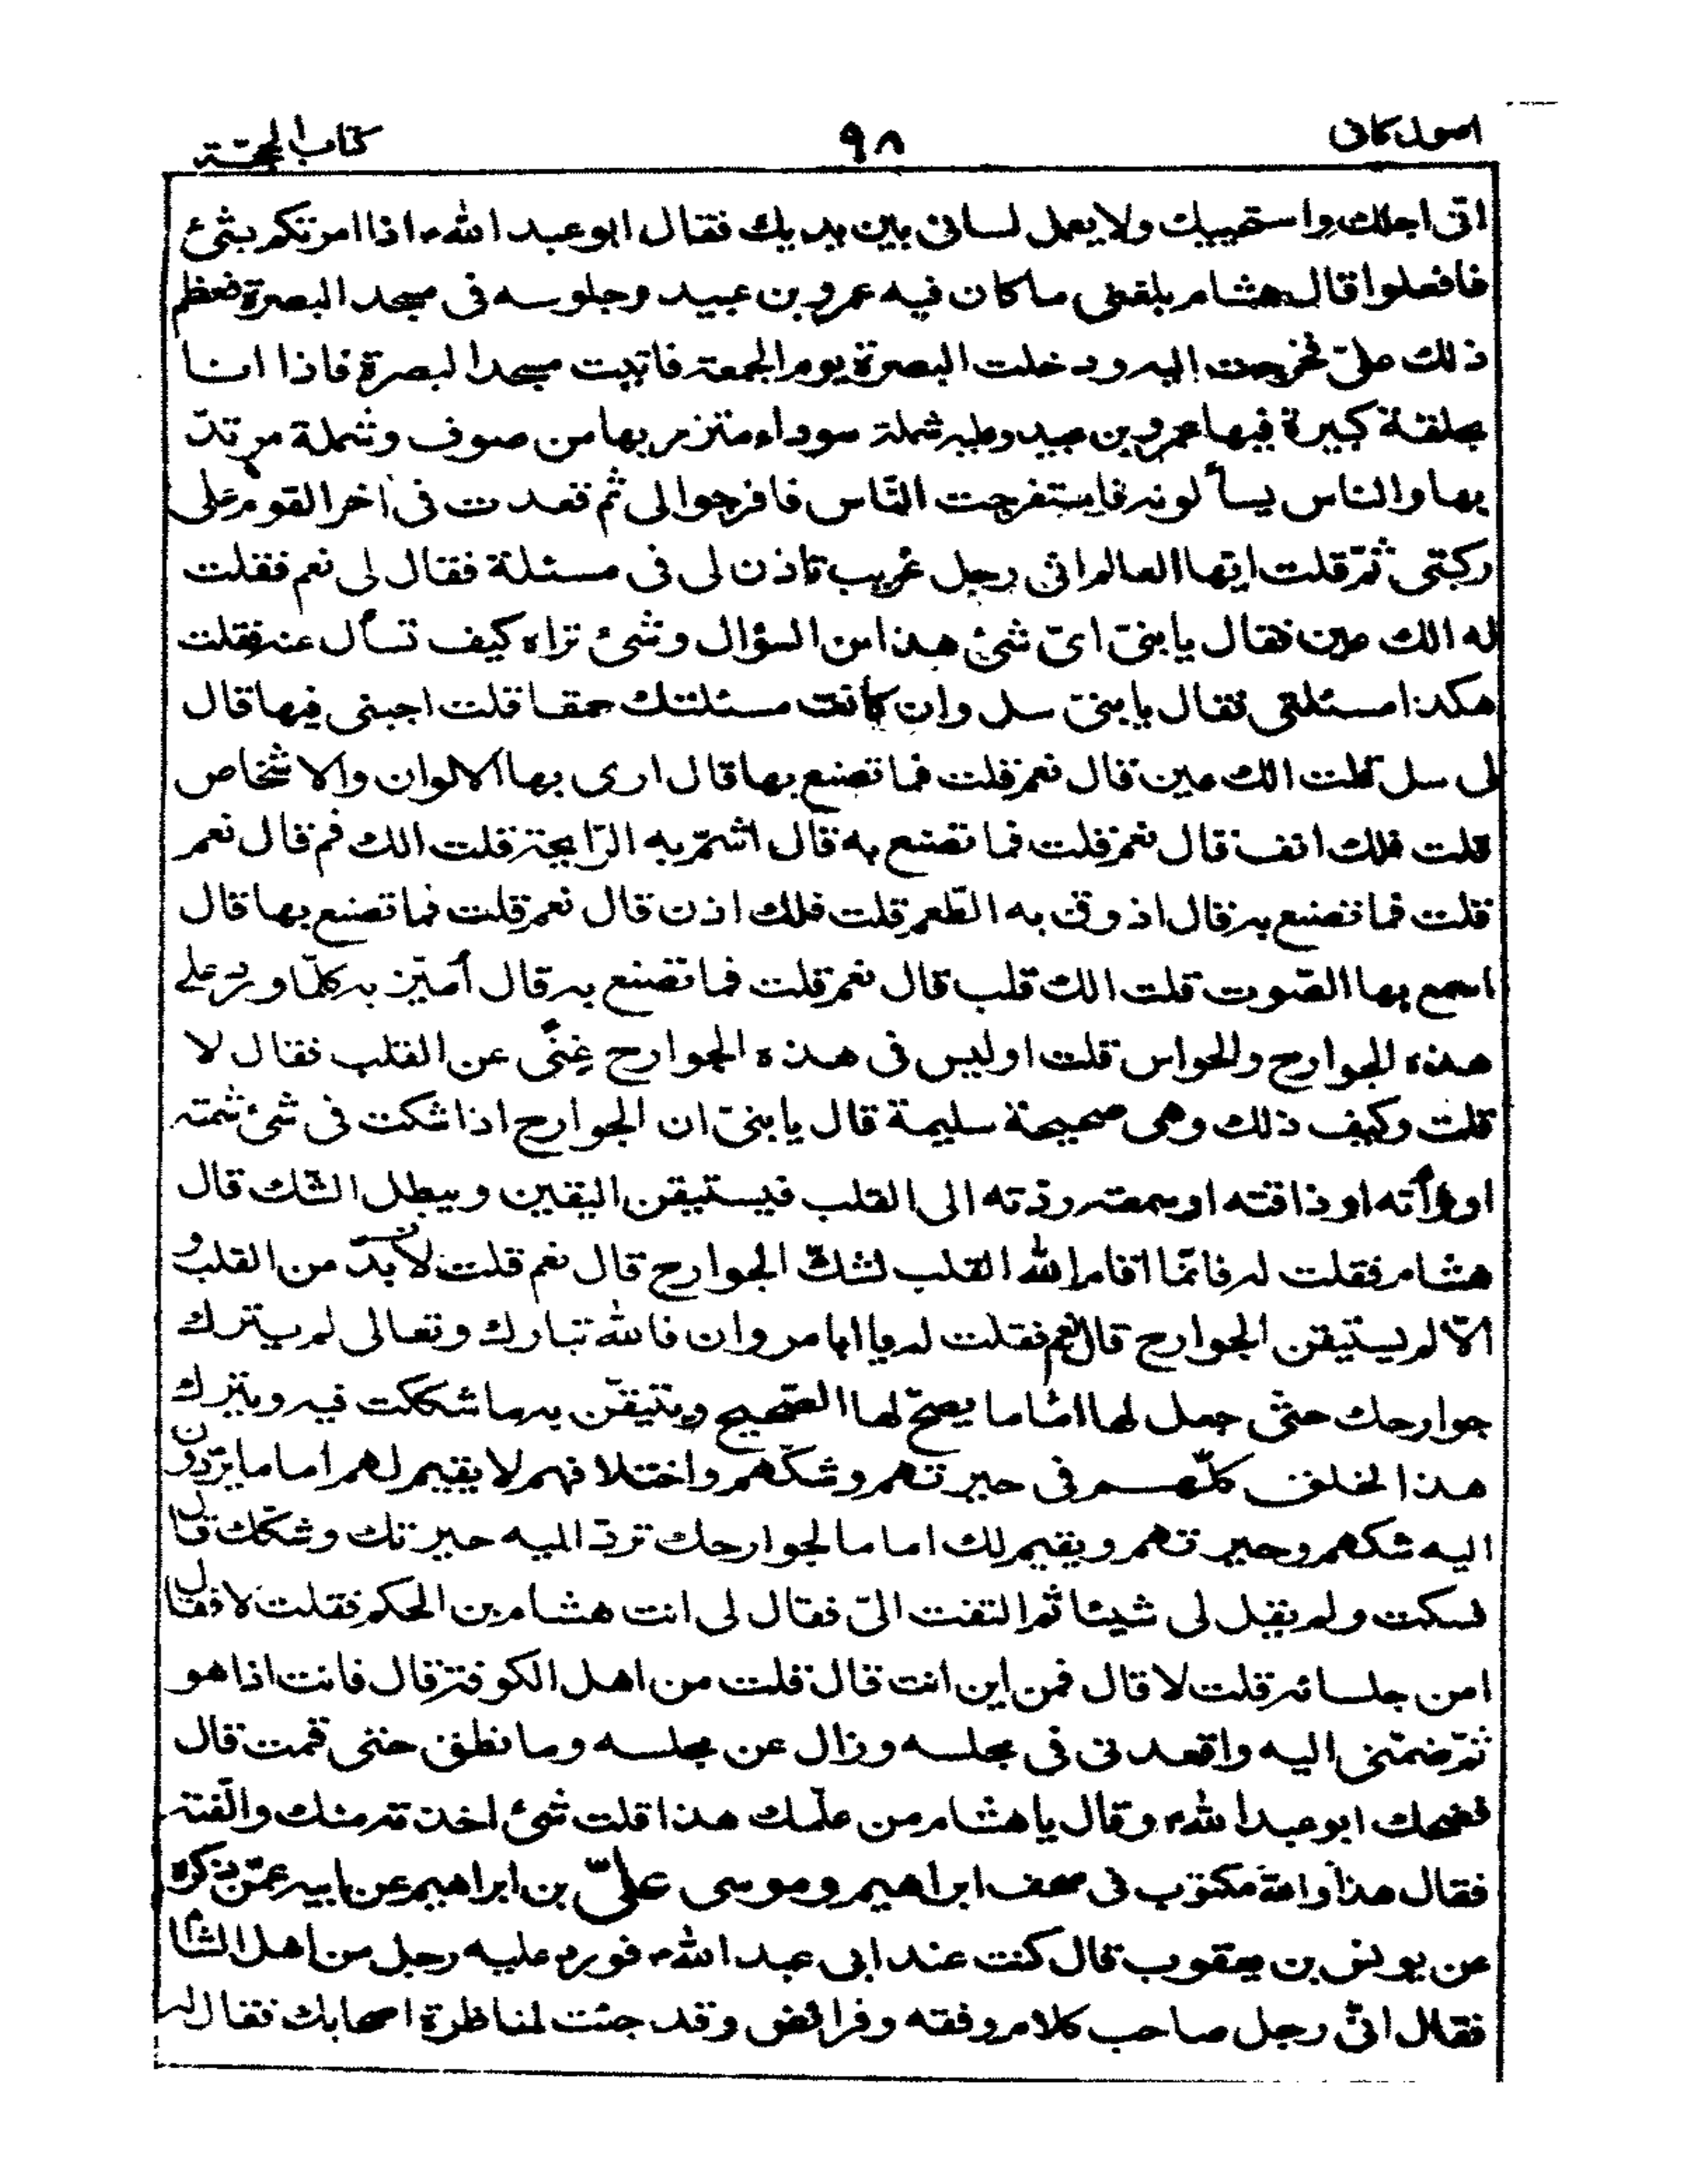 اصول کافی
۹۸
کتاب الحجّة
انّی اجلك واستحییك ولا یعمل لسانی بین یدیك فقال ابو عبد الله ع اذا امرتکم بشئ
فافعلوا قال هشام بلغنی ما کان فیه عمرو بن عبید وجلوسه فی مسجد البصرة فعظم
ذلك علیّ فخرجت الیه ودخلت البصرة یوم الجمعة فاتیت مسجد البصرة فاذا انا
بحلقة کبیرة فیها عمرو بن عبید وعلیه شملة سوداء متزر بها من صوف وشملة مرتدّ
بها والناس یسألونه فاستفرجت النّاس فافرجوا لی ثم قعدت فی اخر القوم علی
رکبتی ثمّ قلت ایّها العالم انّی رجل غریب تاذن لی فی مسئلة فقال لی نعم فقلت
له الك عین فقال یا بنیّ ایّ شئ هذا من السؤال وشئ تراه کیف تسأل عنه فقلت
هکذا مسئلتی فقال یا بنیّ سل وان کانت مسئلتك حمقا قلت اجبنی فیها قال
لی سل قلت الك عین قال نعم قلت فما تصنع بها قال اری بها الالوان والاشخاص
قلت فلك انف قال نعم قلت فما تصنع به قال اشمّ به الرّایحة قلت الك فم قال نعم
قلت فما تصنع به قال اذوق به الطّعم قلت فلك اذن قال نعم قلت فما تصنع بها قال
اسمع بها الصّوت قلت الك قلب قال نعم قلت فما تصنع به قال أمیّز به کلّما ورد علی
هذه الجوارح والحواس قلت اولیس فی هذه الجوارح غِنًی عن القلب فقال لا
قلت وکیف ذلك وهی صحیحة سلیمة قال یا بنیّ ان الجوارح اذا شکت فی شئ شمته
او رأته او ذاقته او سمعته ردّته الی القلب فیستیقن الیقین ویبطل الشّك قال
هشام فقلت له فانّما اقام الله القلب لشكّ الجوارح قال نعم قلت لا بدّ من القلب و
الّا لم یستیقن الجوارح قال نعم فقلت له یا ابا مروان فالله تبارك وتعالی لم یترك
جوارحك حتّی جعل لها اماما یصحّ لها الصّحیح ویتیقّن به ما شککت فیه ویترك
هذا الخلق کلّهم فی حیرتهم وشکّهم واختلافهم لا یقیم لهم اماما یردّون
الیه شکهم وحیرتهم ویقیم لك اماما لجوارحك تردّ الیه حیرتك وشکّك قال
فسکت ولم یقل لی شیئا ثم التفت الیّ فقال لی انت هشام بن الحکم فقلت لا فقال
امن جلسائه قلت لا قال فمن این انت قال قلت من اهل الکوفة قال فانت اذا هو
ثمّ ضمّنی الیه واقعدنی فی مجلسه وزال عن مجلسه وما نطق حتی قمت قال
فضحك ابو عبد الله ع وقال یا هشام من علّمك هذا قلت شئ اخذته منك والّفته
فقال هذا والله مکتوب فی صحف ابراهیم وموسی علیّ بن ابراهیم عن ابیه عمّن ذکره
عن یونس بن یعقوب قال کنت عند ابی عبد الله ع فورد علیه رجل من اهل الشام
فقال انّی رجل صاحب کلام وفقه وفرائض وقد جئت لمناظرة اصحابك فقال له